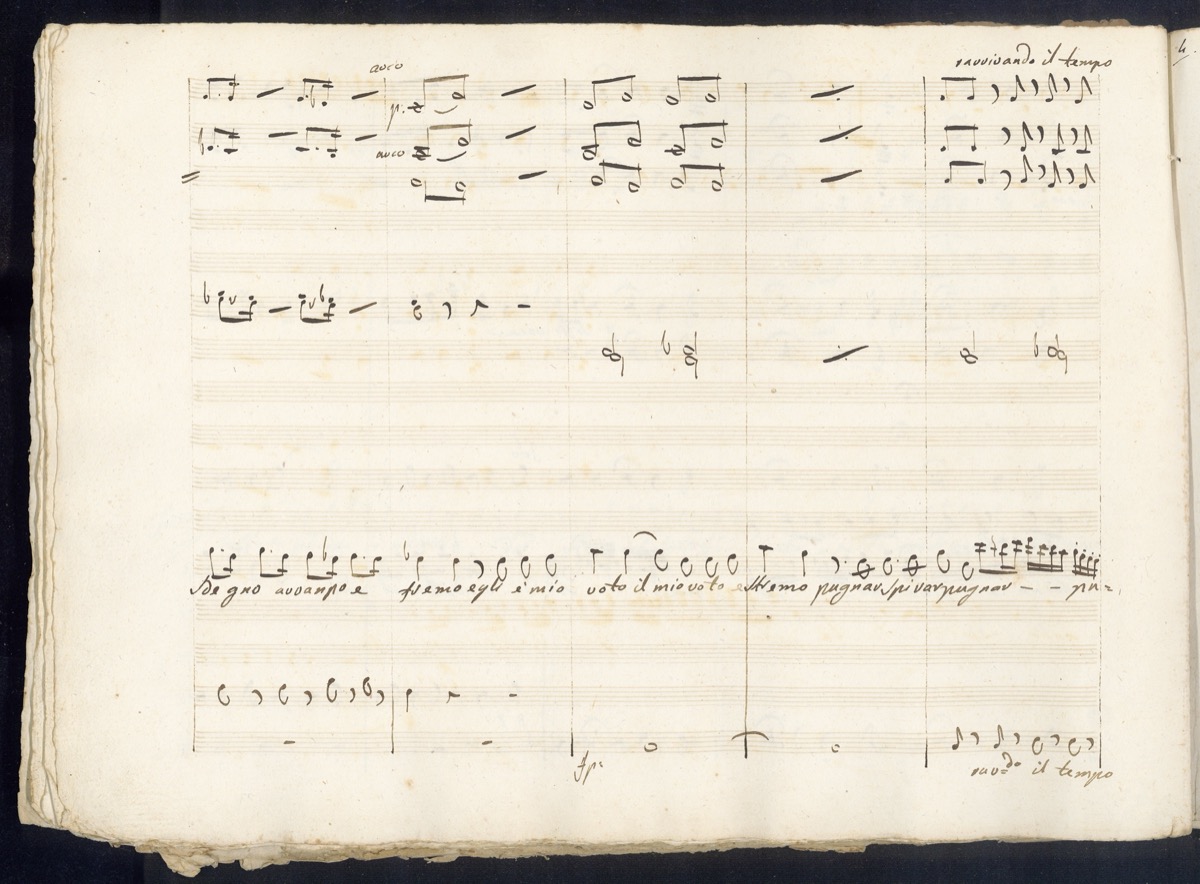 arco
ravvivando il tempo
4.
p.
arco
Sdegno avvampo e fremo egli è mio voto il mio voto estremo pugnar spirar pugnar - - pu=
fp:
ravv.do il tempo